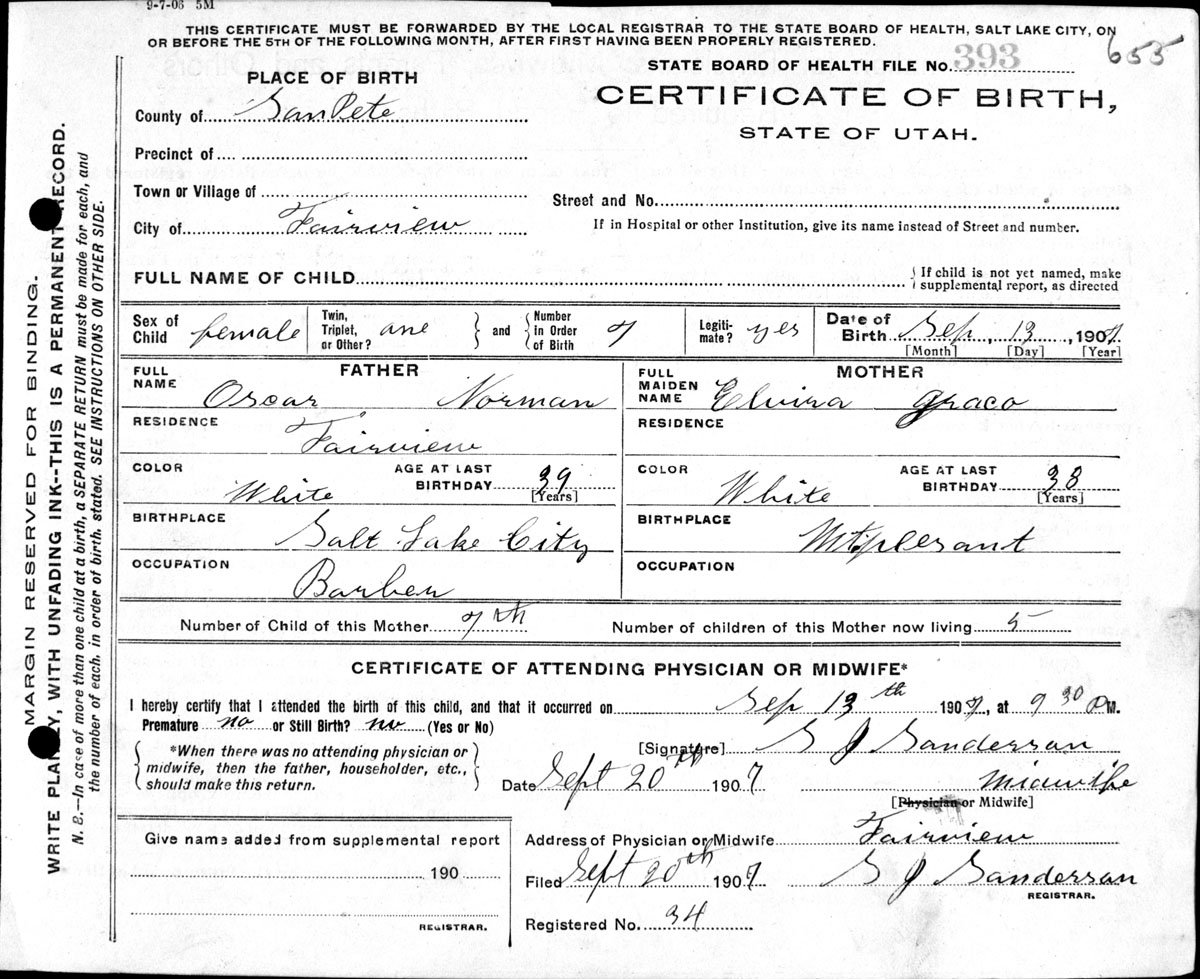 9-7-06 5M
THIS CERTIFICATE MUST BE FORWARDED BY THE LOCAL REGISTRAR TO THE STATE BOARD OF HEALTH, SALT LAKE CITY, ON
OR BEFORE THE 5TH OF THE FOLLOWING MONTH, AFTER FIRST HAVING BEEN PROPERLY REGISTERED.
655
MARGIN RESERVED FOR BINDING.
WRITE PLAINLY, WITH UNFADING INK--THIS IS A PERMANENT RECORD.
N. B.--In case of more than one child at a birth, a SEPARATE RETURN must be made for each, and
the number of each, in order of birth, stated. SEE INSTRUCTIONS ON OTHER SIDE.
PLACE OF BIRTH
STATE BOARD OF HEALTH FILE No. 393
CERTIFICATE OF BIRTH,
STATE OF UTAH.
County of SanPete
Precinct of
Town or Village of
Street and No.
City of Fairview
If in Hospital or other Institution, give its name instead of Street and number.
FULL NAME OF CHILD
If child is not yet named, make
supplemental report, as directed
Sex of Child female Twin, Triplet, or Other? one and Number in Order of Birth 7 Legiti-mate? yes Date of Birth Sep, 13, 1907
[Month] [Day] [Year]
FATHER MOTHER
FULL NAME Oscar Norman FULL MAIDEN NAME Elvira graco
RESIDENCE Fairview RESIDENCE
COLOR White AGE AT LAST BIRTHDAY 39 [Years] COLOR White AGE AT LAST BIRTHDAY 38 [Years]
BIRTHPLACE Salt Lake City BIRTHPLACE Mt.plesant
OCCUPATION Barber OCCUPATION
Number of Child of this Mother 7th Number of children of this Mother now living 5
CERTIFICATE OF ATTENDING PHYSICIAN OR MIDWIFE*
I hereby certify that I attended the birth of this child, and that it occurred on Sep 13th 1907, at 9 30 P M.
Premature no or Still Birth? no (Yes or No)
*When there was no attending physician or
midwife, then the father, householder, etc.,
should make this return.
[Signature] S J Sanderson
Date Sept 20th 1907 Midwife
[Physician or Midwife]
Give name added from supplemental report
190
REGISTRAR.
Address of Physician or Midwife Fairview
Filed Sept 20th 1907 S J Sanderson
REGISTRAR.
Registered No. 34